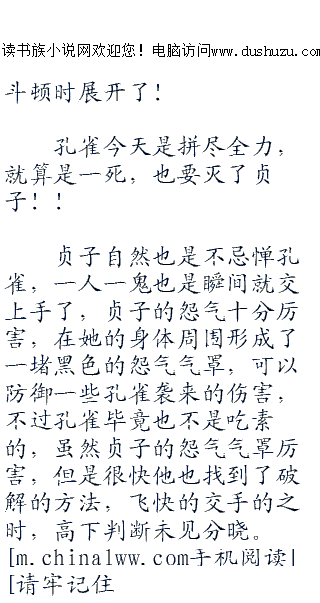 读书族小说网欢迎您！电脑访问www.dushuzu.com
斗顿时展开了！
孔雀今天是拼尽全力，
就算是一死，也要灭了贞
子！！
贞子自然也是不忌惮孔
雀，一人一鬼也是瞬间就交
上手了，贞子的怨气十分厉
害，在她的身体周围形成了
一堵黑色的怨气气罩，可以
防御一些孔雀袭来的伤害，
不过孔雀毕竟也不是吃素
的，虽然贞子的怨气气罩厉
害，但是很快他也找到了破
解的方法，飞快的交手的之
时，高下判断未见分晓。
[m.china1ww.com手机阅读|
[请牢记住